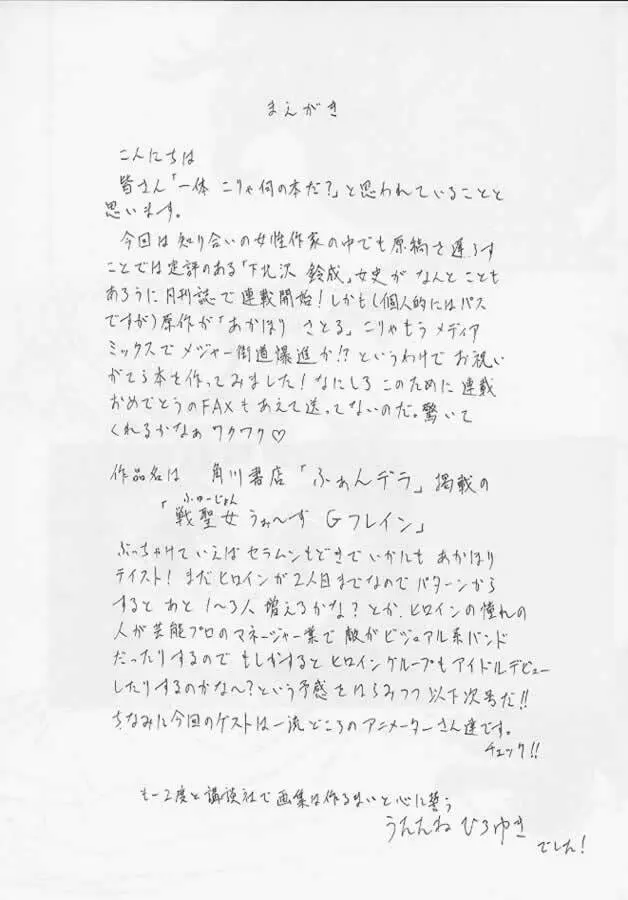 まえがき
こんにちは
皆さん「一体 こりゃ何の本だ?」と思われていることと
思います。
今回は知り合いの女性作家の中でも原稿を遅らす
ことでは定評のある「下北沢 鈴成」女史が なんと ことも
あろうに月刊誌で連載開始!しかも(個人的にはパス
ですが)原作が「あかほり さとる」こりゃもう メディア
ミックスで メジャー街道爆進か!?というわけで お祝い
がてら本を作ってみました!なにしろ このために連載
おめでとうのFAXもあえて送ってないのだ。驚いて
くれるかなぁ ワクワク♡
作品名は 角川書店「ふぁんデラ」掲載の
ふゅーじょん
「戦聖女 うぉ〜ず Gフレイン」
ぶっちゃけていえばセラムンもどきでいかにも あかほり
テイスト! まだヒロインが2人目までなので パターンから
すると あと 1〜3人 増えるかな? とか、ヒロインの憧れの
人が芸能プロのマネージャー業で 敵がビジュアル系バンド
だったりするので もしかすると ヒロイングループもアイドルデビュー
したりするのかな〜?という予感をはらみつつ 以下次号だ!!
ちなみに今回のゲストは一流どころのアニメーターさん達です。
チェック!!
もー2度と講談社で画集は作るまいと心に誓う
うたたね ひろゆき
でした!